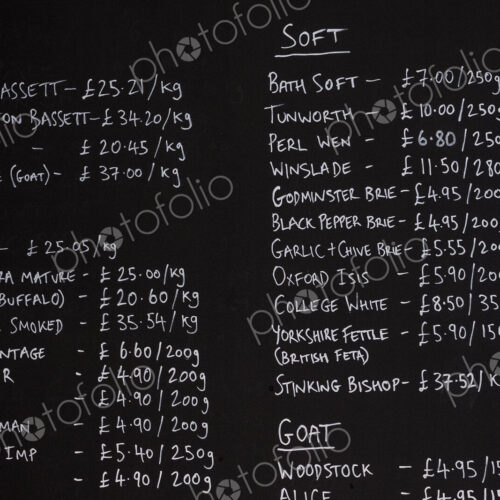 ASSETT - £25.21/kg
ON BASSETT - £34.20/kg
- £20.45/kg
(GOAT) - £37.00/kg
- £25.05/kg
RA MATURE - £25.00/kg
(BUFFALO) - £20.60/kg
SMOKED - £35.54/kg
NTAGE - £6.60/200g
R - £4.90/200g
- £4.90/200g
MAN - £4.90/200g
IMP - £5.40/250g
- £4.90/200g
SOFT
BATH SOFT - £7.00/250g
TUNWORTH - £10.00/250
PERL WEN - £6.80/250
WINSLADE - £11.50/280
GODMINSTER BRIE - £4.95/200
BLACK PEPPER BRIE - £4.95/200
GARLIC + CHIVE BRIE £5.55/200
OXFORD ISIS - £5.90/200
COLLEGE WHITE - £8.50/35
YORKSHIRE FETTLE - £5.90/150
(BRITISH FETA)
STINKING BISHOP - £37.52/K
GOAT
WOODSTOCK - £4.95/15
ALICE - £4.95/15
photofolio
photofolio
photofolio
photofolio
photofolio
photofolio
photofolio